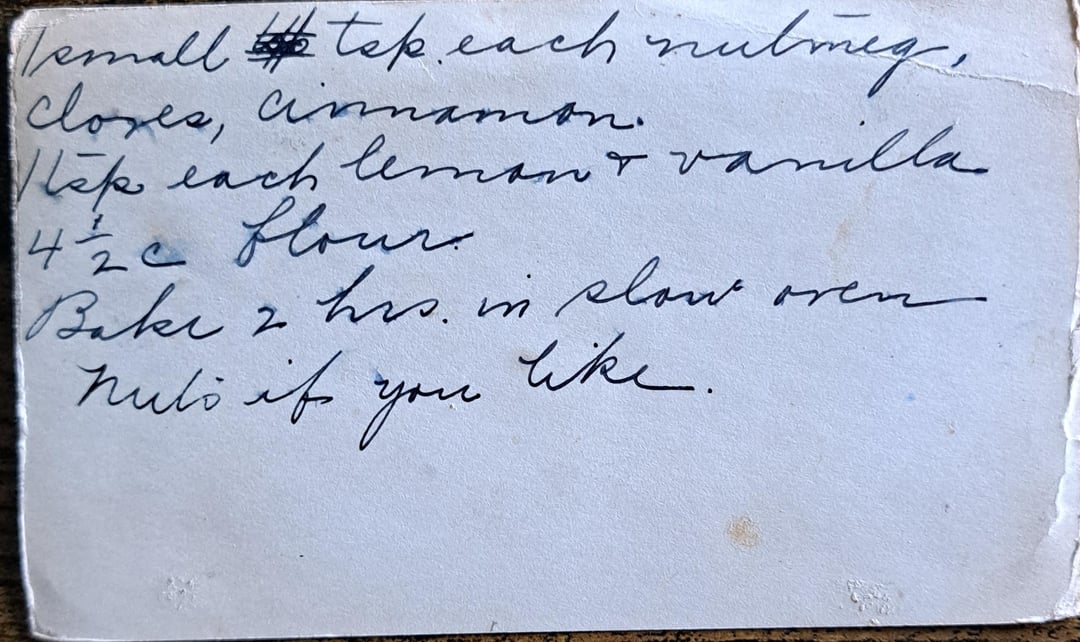 1 small tsp. each nutmeg,
cloves, cinnamon.
1 tsp each lemon & vanilla
4 1/2 c flour.
Bake 2 hrs. in slow oven
Nuts if you like.